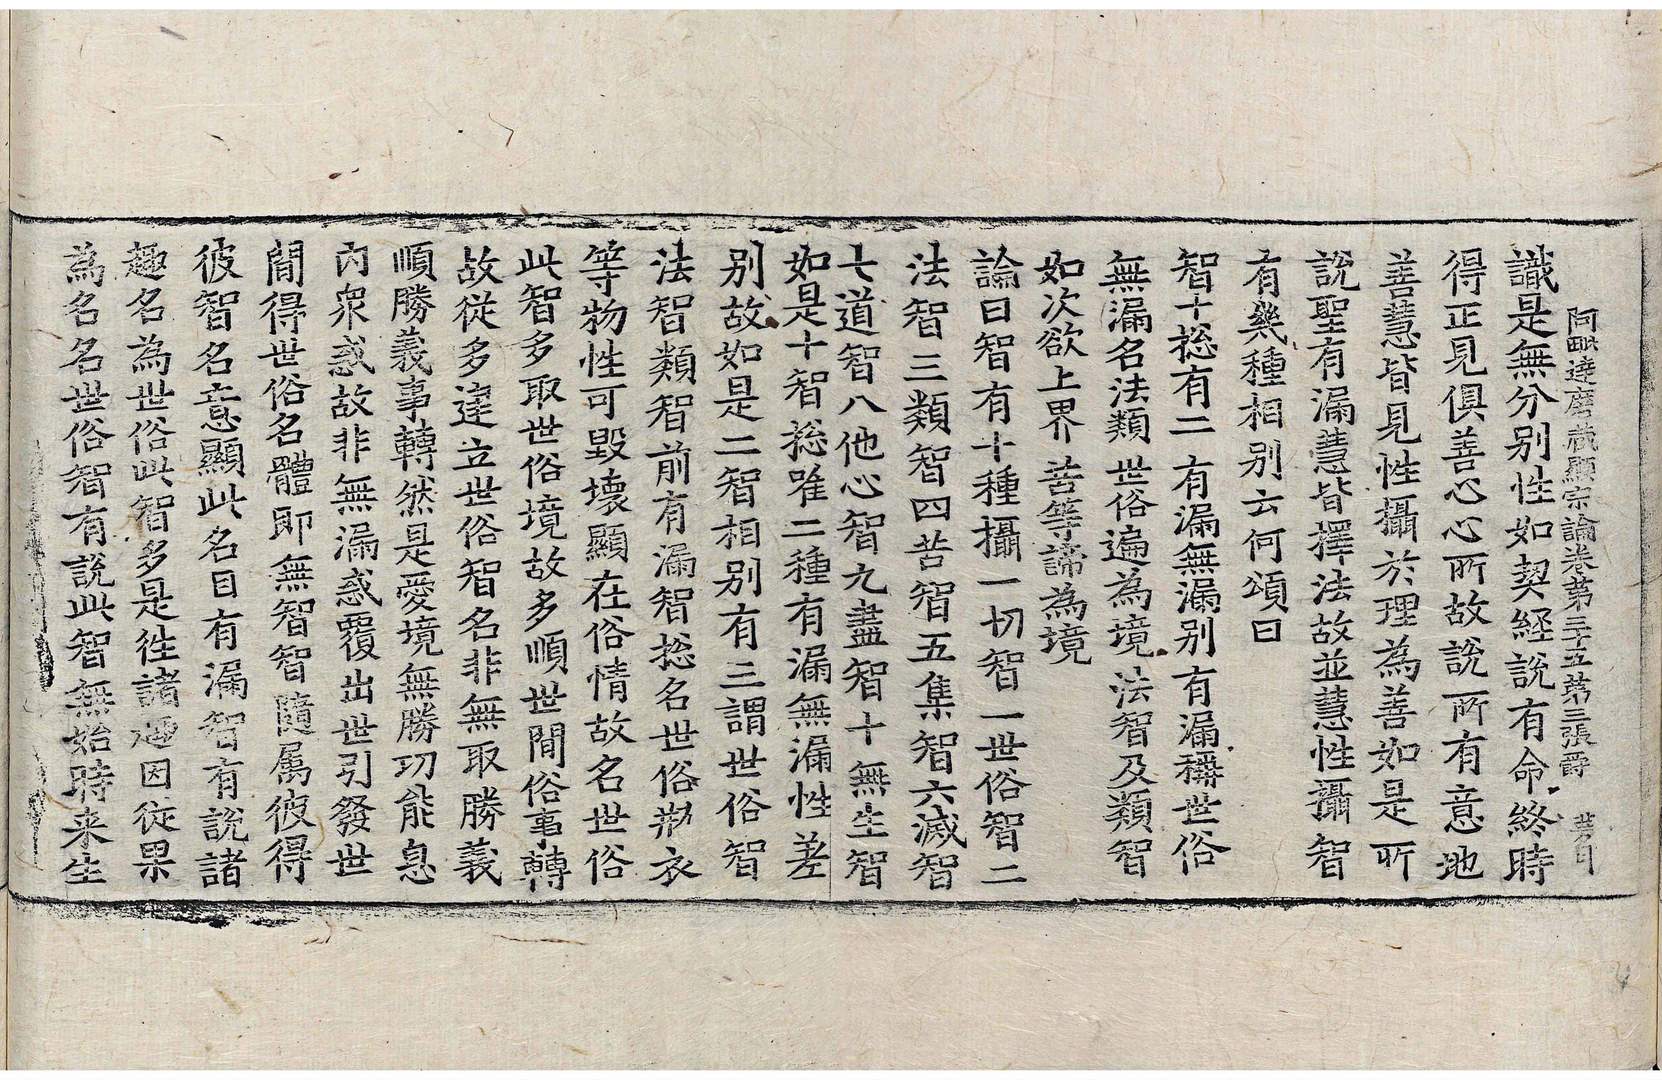 阿毗達磨藏顯宗論卷第三十五第三張爵
識是無分別性如契經說有命終時
得正見俱善心心所故說所有意地
善慧皆見性攝於理為善如是所
說聖有漏慧皆擇法故並慧性攝智
有幾種相別云何頌曰
智十捴有二 有漏無漏別 有漏稱世俗
無漏名法類 世俗遍為境 法智及類智
如次欲上界 苦等諦為境
論曰智有十種攝一切智一世俗智二
法智三類智四苦智五集智六滅智
七道智八他心智九盡智十無生智
如是十智捴唯二種有漏無漏性差
別故如是二智相別有三謂世俗智
法智類智前有漏智捴名世俗瓶衣
等物性可毀壞顯在俗情故名世俗
此智多取世俗境故多順世間俗事轉
故從多建立世俗智名非無取勝義
順勝義事轉然是愛境無勝功能息
內眾惑故非無漏惑覆出世引發世
間得世俗名體即無智智隨屬彼得
彼智名意顯此名目有漏智有說諸
趣名為世俗此智多是往諸趣因從果
為名名世俗智有說此智無始時来生